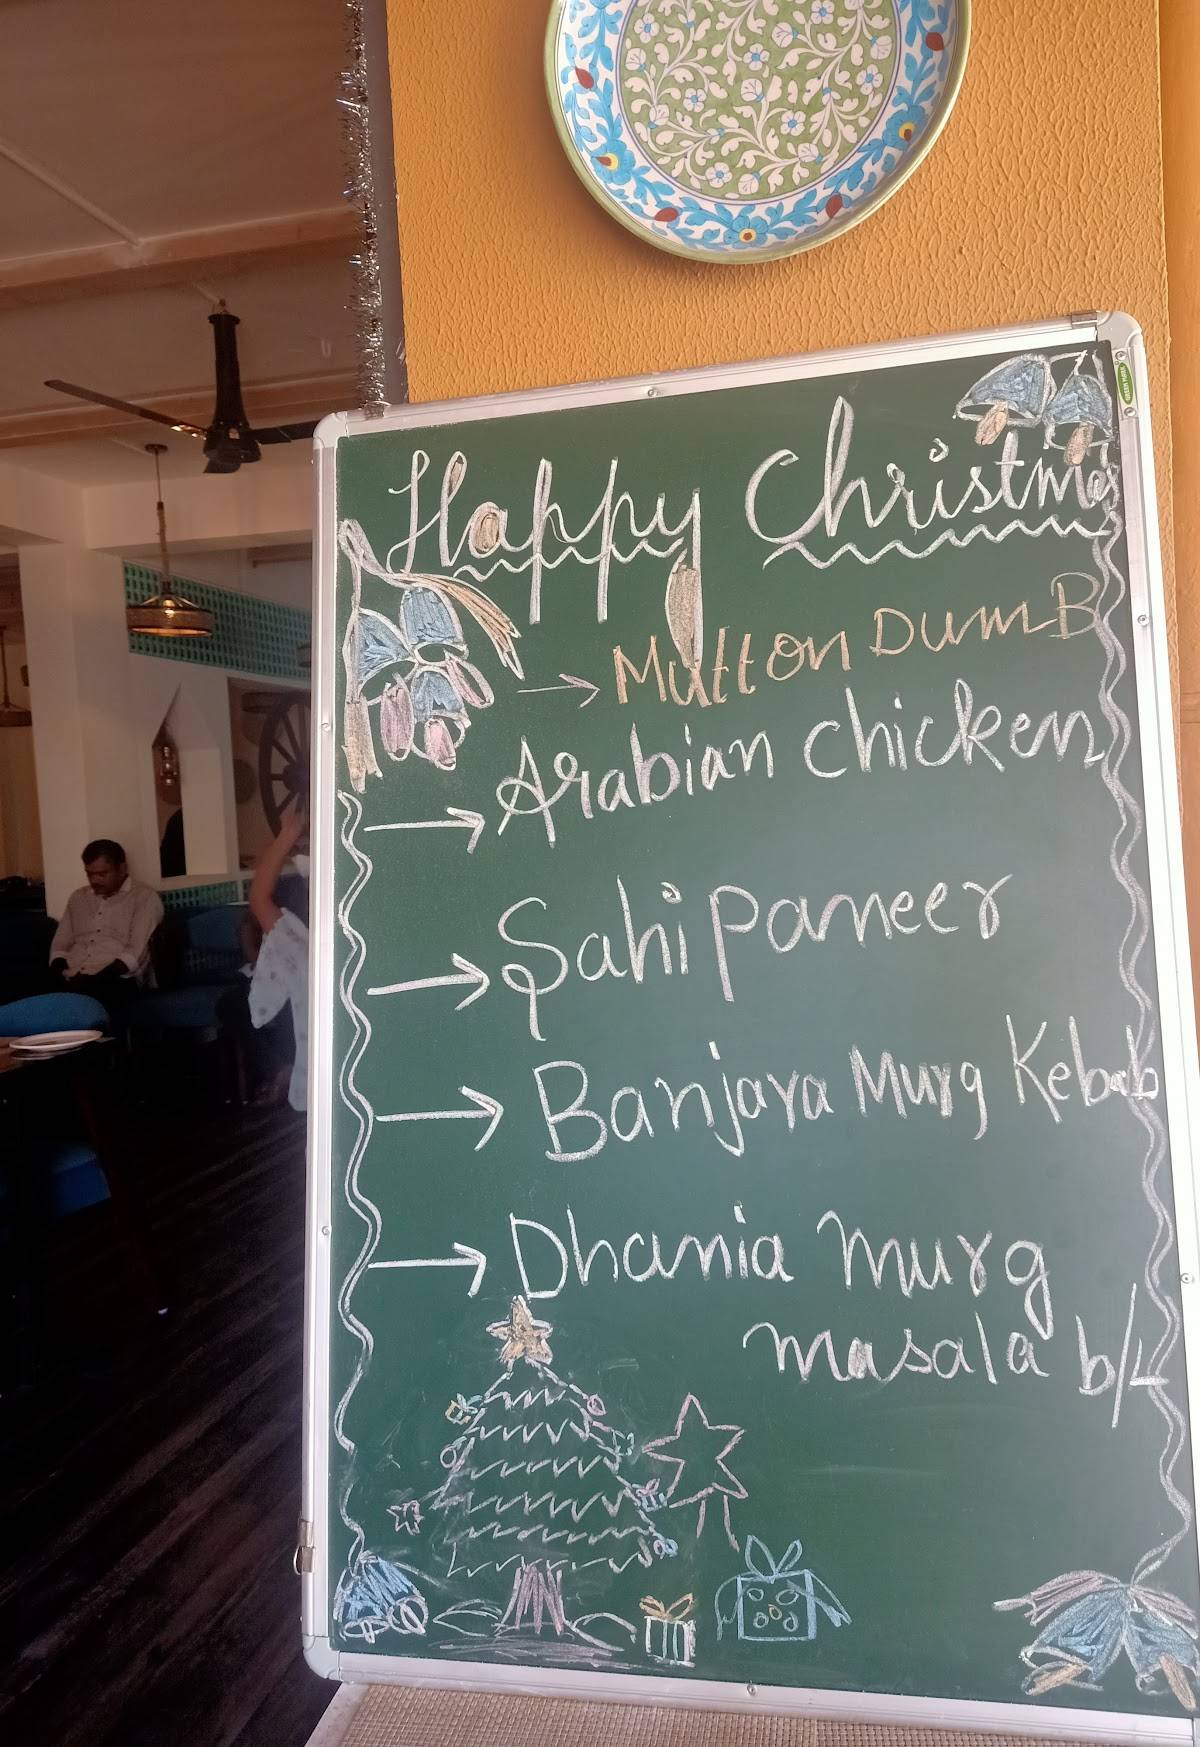 Happy Christmas
→ Mutton Dum B
→ Arabian chicken
→ Sahi paneer
→ Banjara Murg Kebab
→ Dhania murg
masala b/L
GREEN MARK